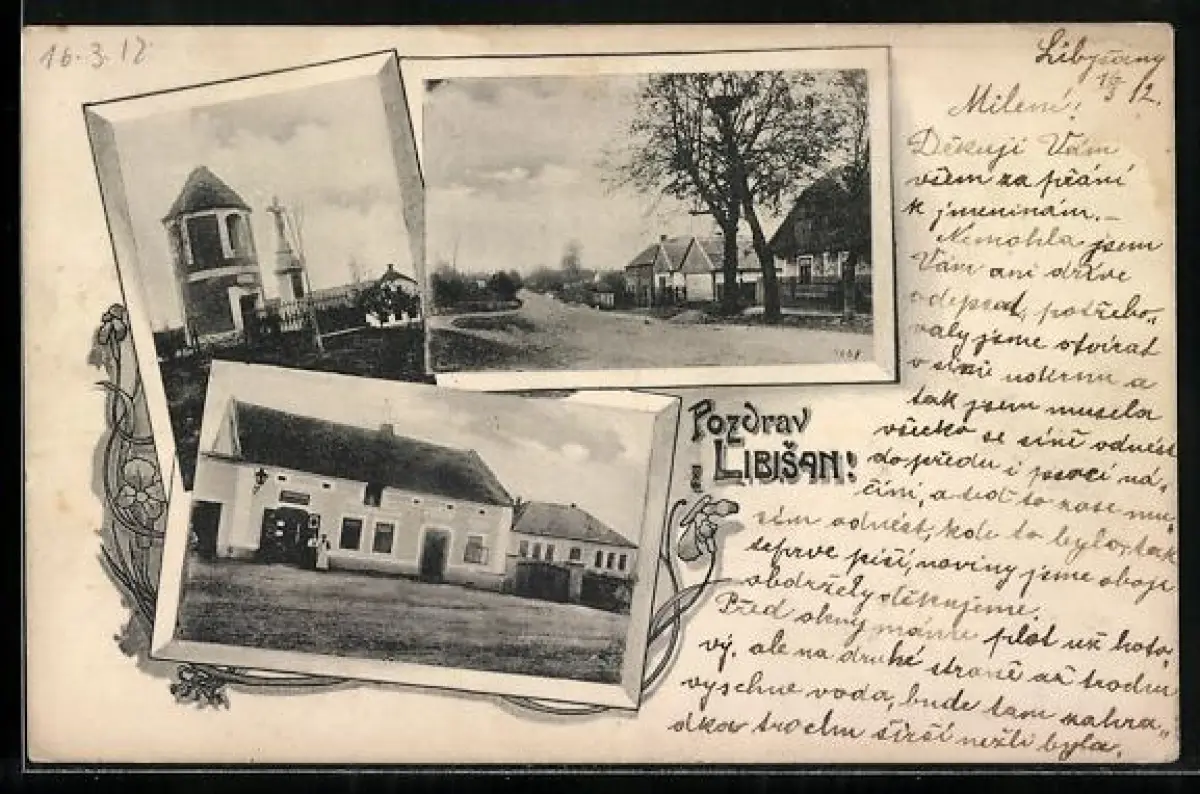 16.3.12
Libyšany
Milení!
Děkuji Vám
všem za přání
k jmeninám.–
Nemohla jsem
Vám ani dříve
odepsat, potřebo„
valy jsme otvírat
v síni a
tak jsem musela
všecko se síně odnést
do předu i psací ná„
číní, a teď to zase mu„
sím odnést, kde to bylo, tak
teprve píši, noviny jsme oboje
obdržely děkujeme.
Před okny máme plot už hoto„
vý, ale na druhé straně až trochu
vyschne voda, bude tam zahra„
dka trochu širší nežli byla.
Pozdrav
z LIBIŠAN!